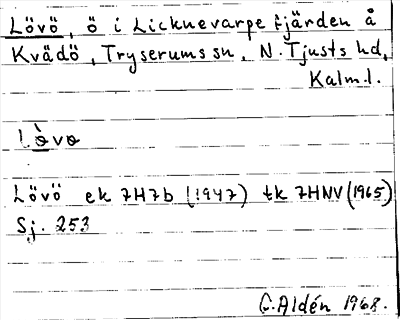 Lövö, ö i Licknevarpefjärden å
Kvädö, Tryserums sn, N. Tjusts hd,
Kalm. l.
Lòvo
Lövö ek 7H7b (1947) tk 7HNV (1965)
Sj. 253
G. Aldén 1968.